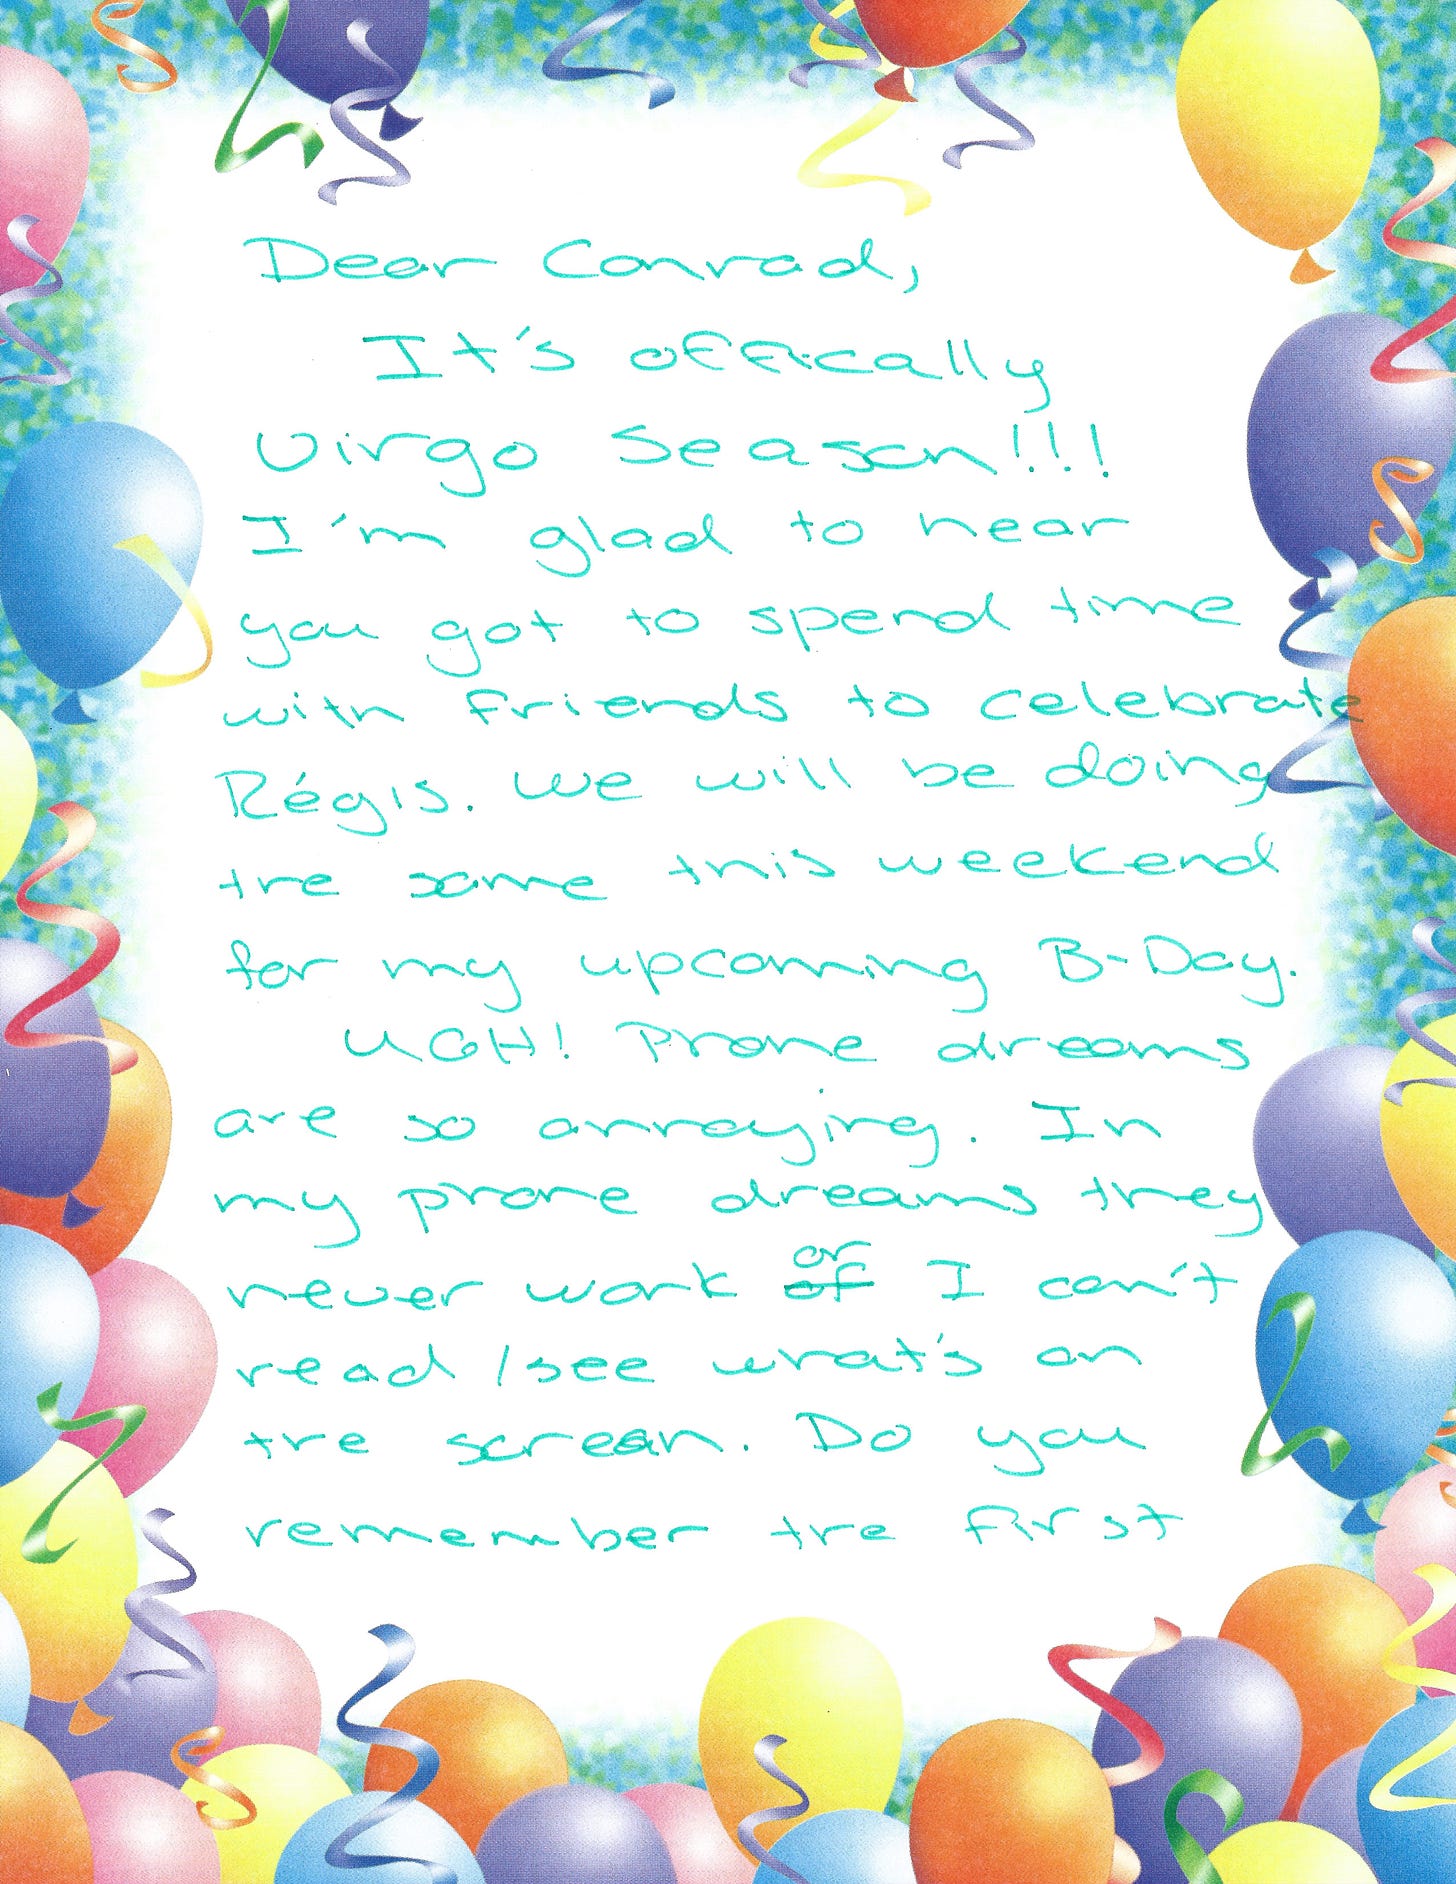 Dear Conrad,
It's offically
Virgo Season!!!
I'm glad to hear
you got to spend time
with friends to celebrate
Régis. We will be doing
the same this weekend
for my upcoming B-Day.
UGH! Phone dreams
are so annoying. In
my phone dreams they
never work or
of I can't
read/see what's on
the screan. Do you
remember the first